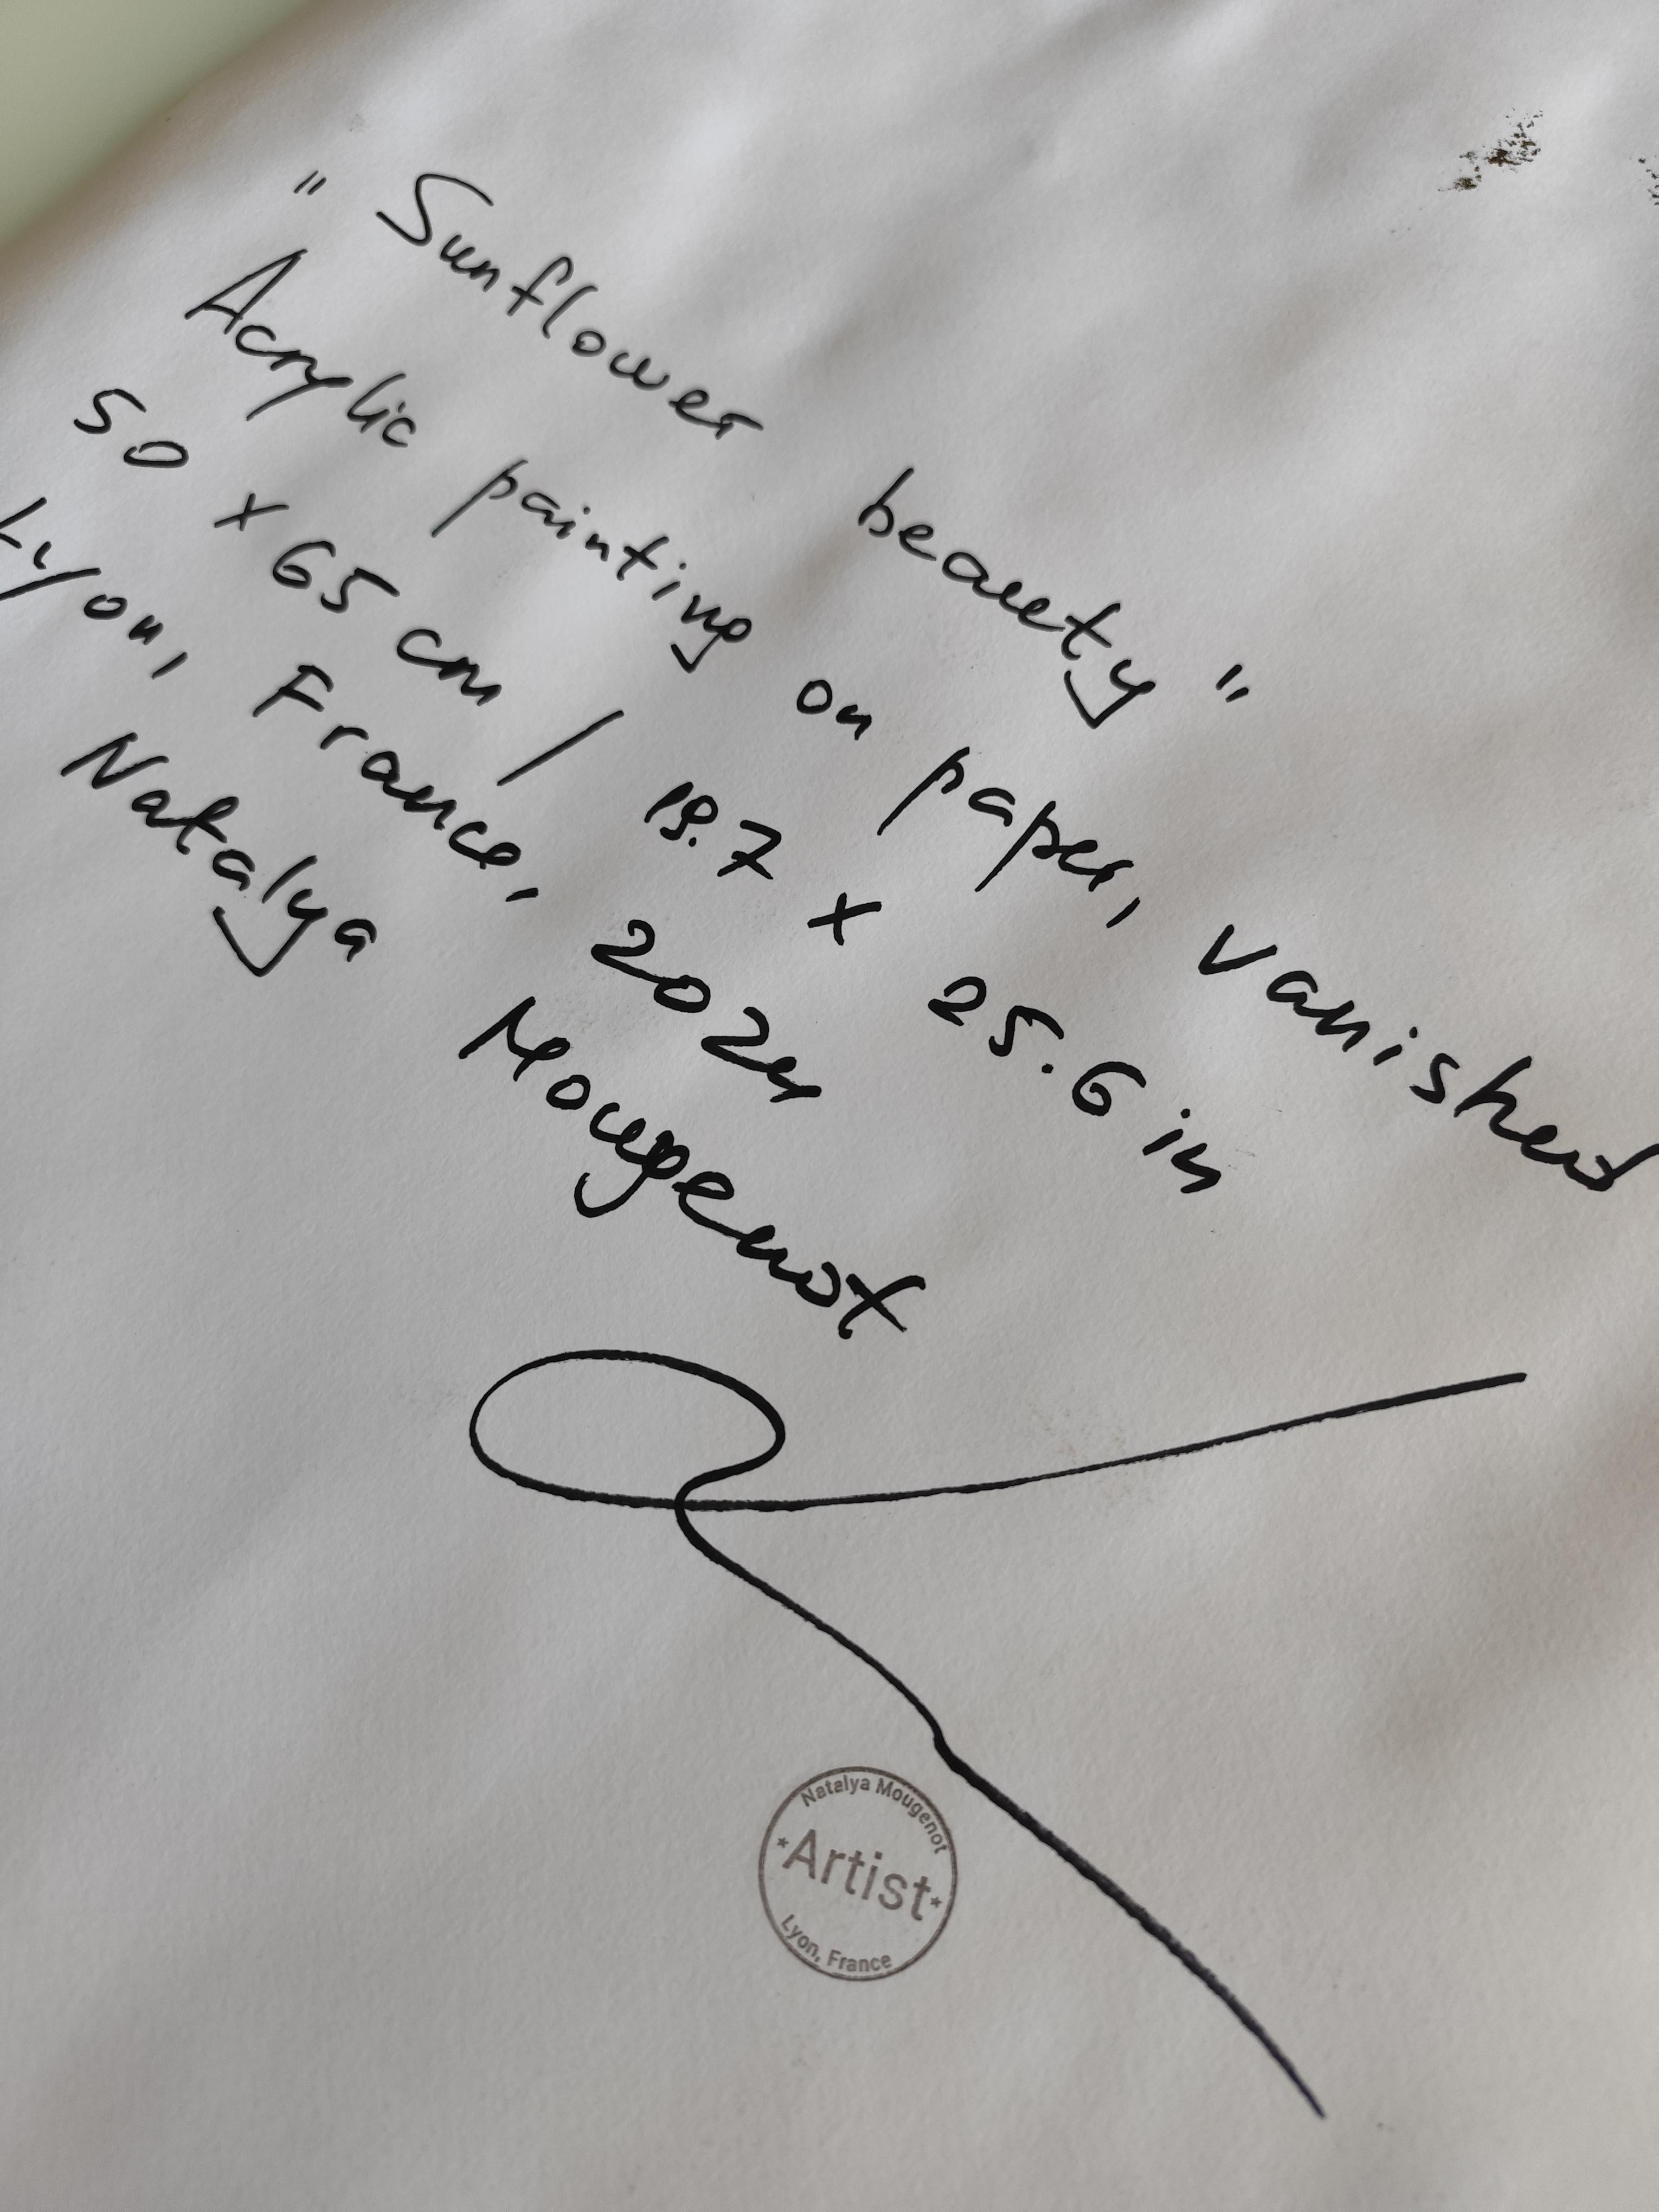 "Sunflower beauty"
Acrylic painting on paper, vanished
50 x 65 cm / 19.7 x 25.6 in
Lyon, France, 2024
Natalya Mougenot
Natalya Mougenot
*Artist*
Lyon, France